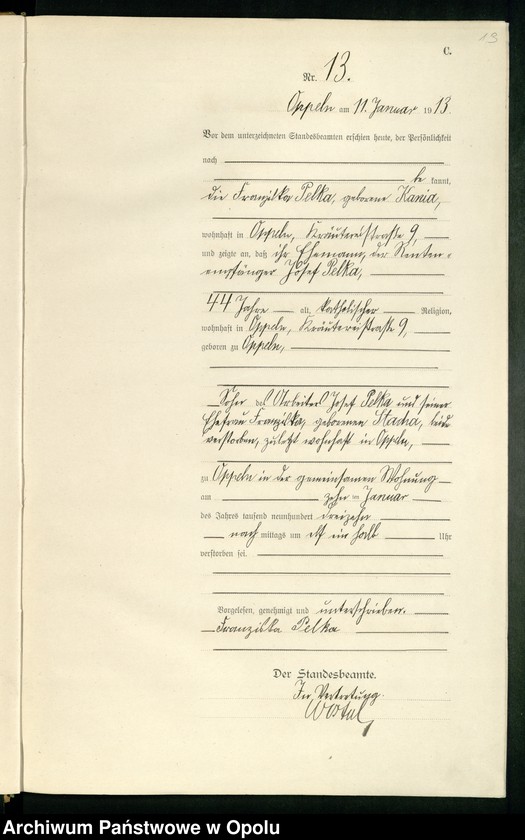 13
C.
Nr. 13.
Oppeln am 11. Januar 1913.
Vor dem unterzeichneten Standesbeamten erschien heute, der Persönlichkeit
nach
be kannt,
die Franziska Pelka, geborene Kania,
wohnhaft in Oppeln, Kräutereistraße 9,
und zeigte an, daß ihr Ehemann, der Renten-
empfänger Josef Pelka,
44 Jahre alt, katholischer Religion,
wohnhaft in Oppeln, Kräutereistraße 9,
geboren zu Oppeln,
Sohn des Arbeiters Josef Pelka und seiner
Ehefrau Franziska, geborenen Stacha, beide
verstorben, zuletzt wohnhaft in Oppeln,
zu Oppeln in der gemeinsamen Wohnung
am zehn ten Januar
des Jahres tausend neunhundert dreizehn
nach mittags um ein halb Uhr
verstorben sei.
Vorgelesen, genehmigt und unterschrieben.
Franziska Pelka
Der Standesbeamte.
In Vertretung.
Archiwum Państwowe w Opolu